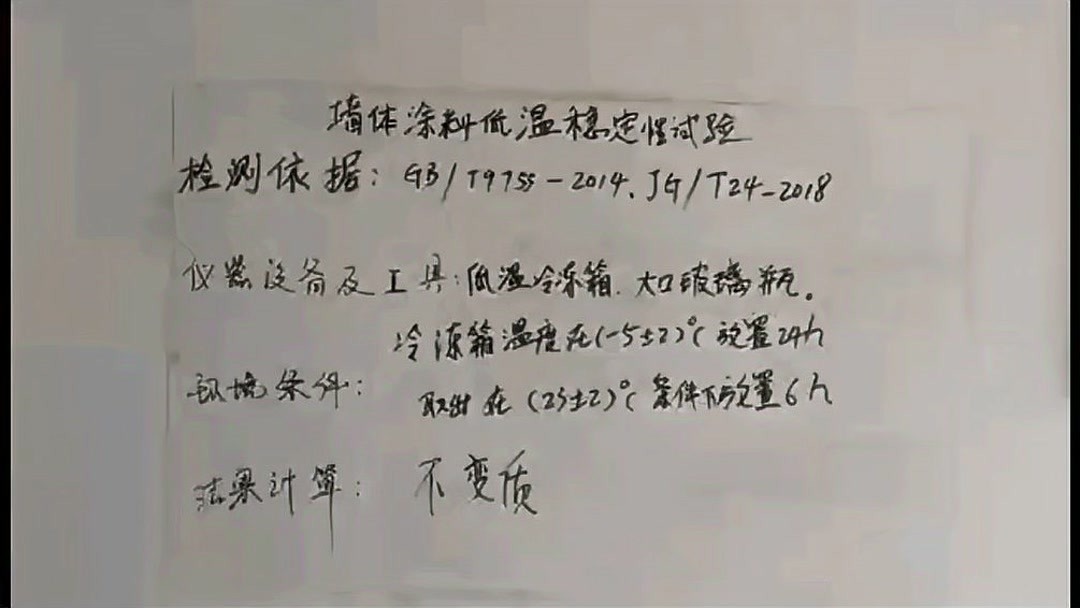 墙体涂料低温稳定性试验
检测依据：GB/T9755-2014、JG/T24-2018
仪器设备及工具：低温冷冻箱、大口玻璃瓶。
冷冻箱温度在(-5±2)℃放置24h
环境条件：
取出在(23±2)℃条件下放置6h
结果计算：不变质